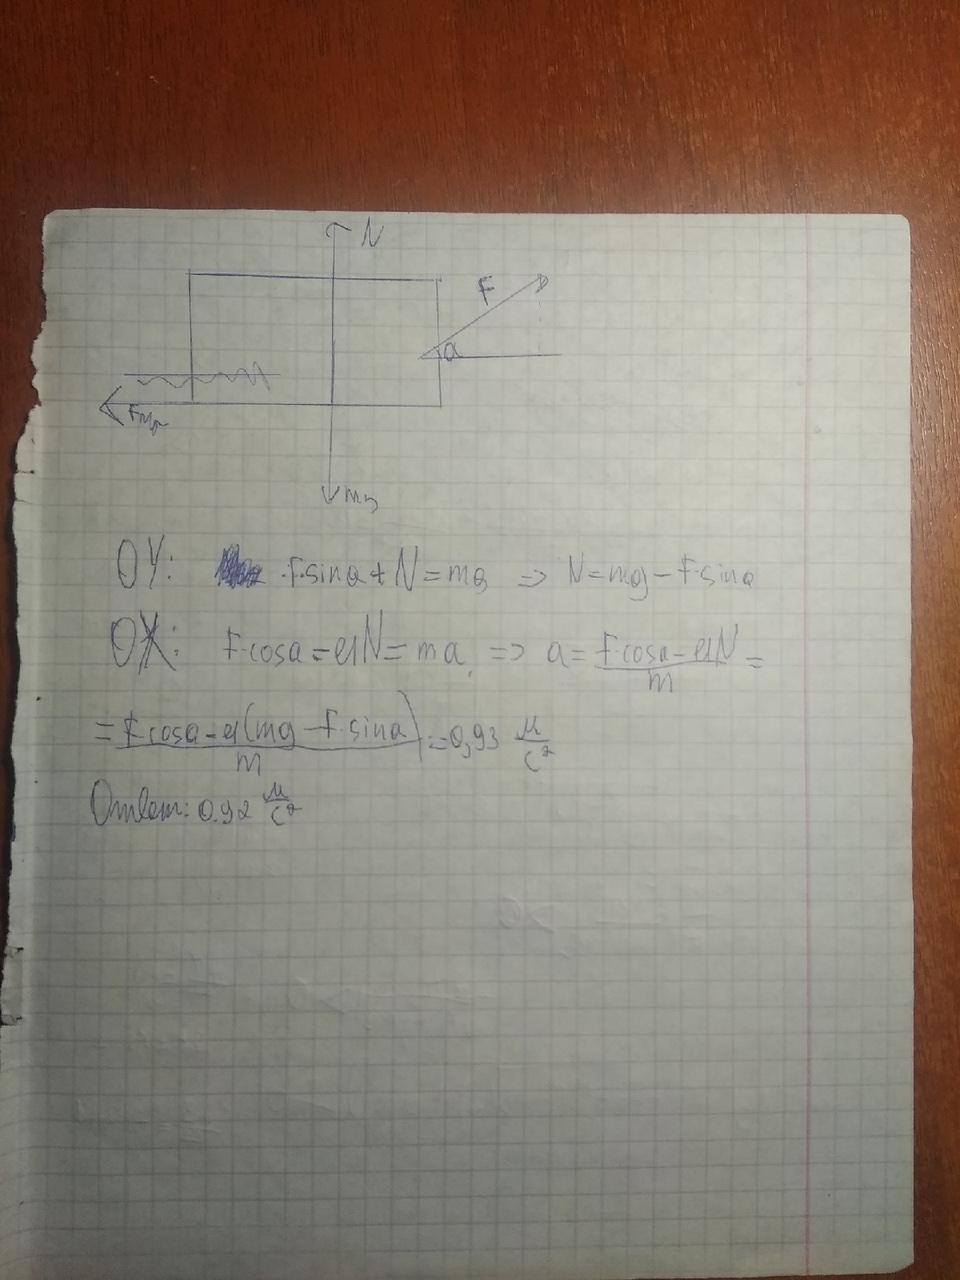 N
F
α
Fтр
mg
OY: F·sinα + N = mg => N = mg - F·sinα
OX: F·cosα - μN = ma => a = F·cosα - μN / m =
= F·cosα - μ(mg - F·sinα) / m = 0,93 м/с²
Ответ: 0,92 м/с²